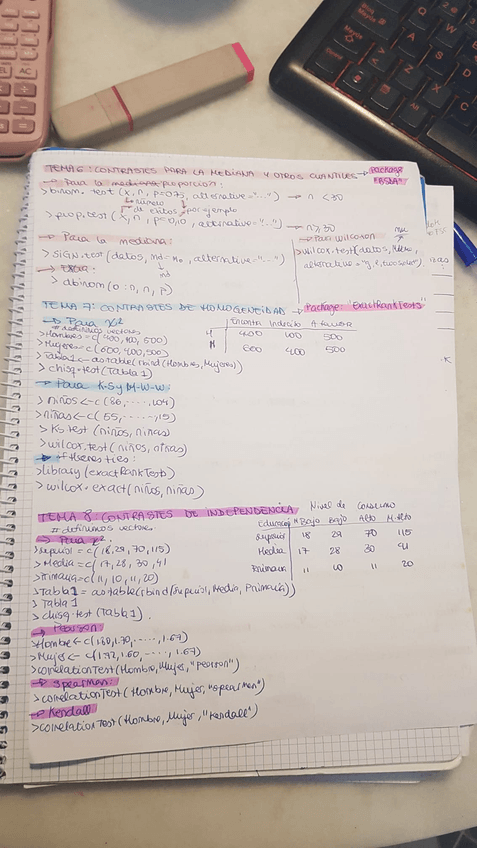 TEMA 6: CONTRASTES PARA LA MEDIANA Y OTROS CUANTILES → Package "BSDA"
→ Para la proporción:
> binom.test (x, n, p=0,75, alternative="...") → n < 30
número de éxitos por ejemplo
> prop.test (x, n, p=0,10, alternative="...") → n≥30
→ Para la mediana:
> SIGN.test (datos, md=M0, alternative="...")
→ Extra:
> dbinom (0:n, n, p)
→ Para Wilcoxon
> wilcox.test (datos,
alternative="g, l, two.sided")
TEMA 7: CONTRASTES DE HOMOGENEIDAD → Package: "ExactRankTests"
→ Para χ2
# definimos vectores
> Hombres = c(400, 100, 500)
> Mujeres = c(600, 400, 500)
> Tabla1 <- as.table(rbind(Hombres, Mujeres))
> chisq.test(Tabla1)
Encontra Indeciso A favor
H 400 100 500
M 600 400 500
→ Para K-S y M-W-W:
> niños <- c(86, ...., 104)
> niñas <- c(55, ....., 15)
> Ks.test (niños, niñas)
> wilcox.test (niños, niñas)
# there ties:
> library(exactRankTests)
> wilcox.exact (niños, niñas)
TEMA 8: CONTRASTES DE INDEPENDENCIA
# definimos vectores
→ Para χ2
> Superior = c(18, 29, 70, 115)
> Media = c(17, 28, 30, 41)
> Primaria = c(11, 10, 11, 20)
> Tabla1 = as.table(rbind(Superior, Media, Primaria))
> Tabla1
> chisq.test (Tabla1).
Nivel de Consumo
Educación M.Bajo Bajo Alto M.Alto
Superior 18 29 70 115
Media 17 28 30 41
Primaria 11 10 11 20
→ Pearson
> Hombre <- c(1.80, 1.70, ...., 1.67)
> Mujer <- c(1.72, 1.60, ...., 1.67)
> correlationTest (Hombre, Mujer, "pearson")
→ Spearman:
> correlationTest (Hombre, Mujer, "spearman")
→ Kendall
> correlationTest (Hombre, Mujer, "Kendall")